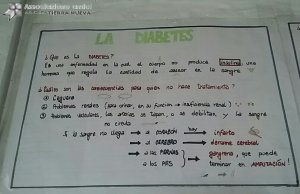 LA DIABETES
¿Que es la DIABETES?
Es una enfermedad en la cual el cuerpo no produce insulina una
hormona que regula la cantidad de azucar en la sangre
¿Cuáles son las consecuencias para quien no hace tratamiento?
① Ceguera
② Problemas renales (para orinar, en su función → insuficiencia renal)
③ Problemas vasculares, las arterias se tapan, o se debilitan, y la sangre
no circula
Si la sangre no llega → al CORAZÓN hay infarto
→ al CEREBRO → derrame cerebral
→ a las PIERNAS gangrena, que puede
o los PIES terminar en AMPUTACIÓN!